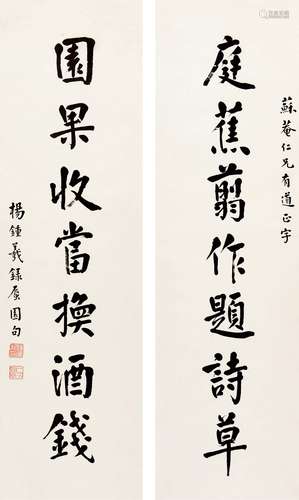 蘇菴仁兄有道正字
庭蕉翦作題詩草
園果收當換酒錢
楊鍾羲錄廎園句